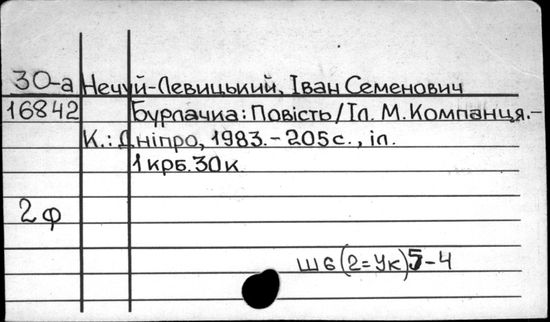 30-а Нечуй-Левицький, Іван Семенович
16842 Бурлачка: Повість/Іл. М. Компанця.-
К.: Дніпро, 1983.-205с., іл.
1 крб. 30к
2ф
Ш6(2=Ук)5-4